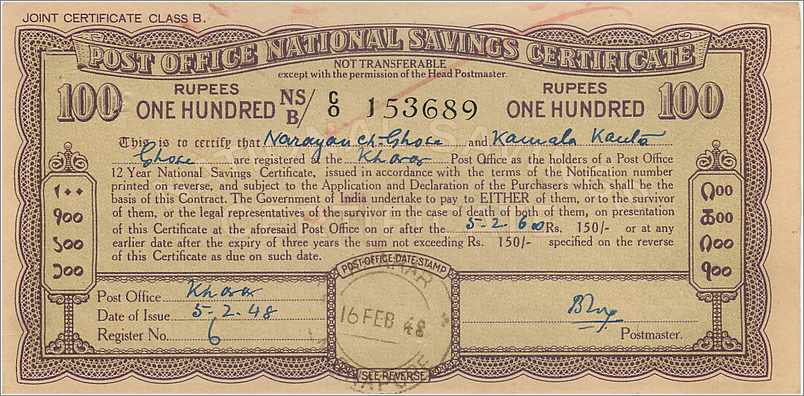 JOINT CERTIFICATE CLASS B.
POST OFFICE NATIONAL SAVINGS CERTIFICATE
NOT TRANSFERABLE
except with the permission of the Head Postmaster.
100 RUPEES ONE HUNDRED NS/B C/0 153689 RUPEES ONE HUNDRED 100
This is to certify that Narayan Ch. Ghose and Kamala Kanta
Ghose are registered at the Kharar Post Office as the holders of a Post Office
12 Year National Savings Certificate, issued in accordance with the terms of the Notification number
printed on reverse, and subject to the Application and Declaration of the Purchasers which shall be the
basis of this Contract. The Government of India undertake to pay to EITHER of them, or to the survivor
of them, or the legal representatives of the survivor in the case of death of both of them, on presentation
of this Certificate at the aforesaid Post Office on or after the 5-2-60 Rs. 150/- or at any
earlier date after the expiry of three years the sum not exceeding Rs. 150/- specified on the reverse
of this Certificate as due on such date.
१००
Post Office Kharar
Date of Issue 5-2-48
Register No. 6
POST-OFFICE DATE STAMP
16 FEB 48
SEE REVERSE
Postmaster.